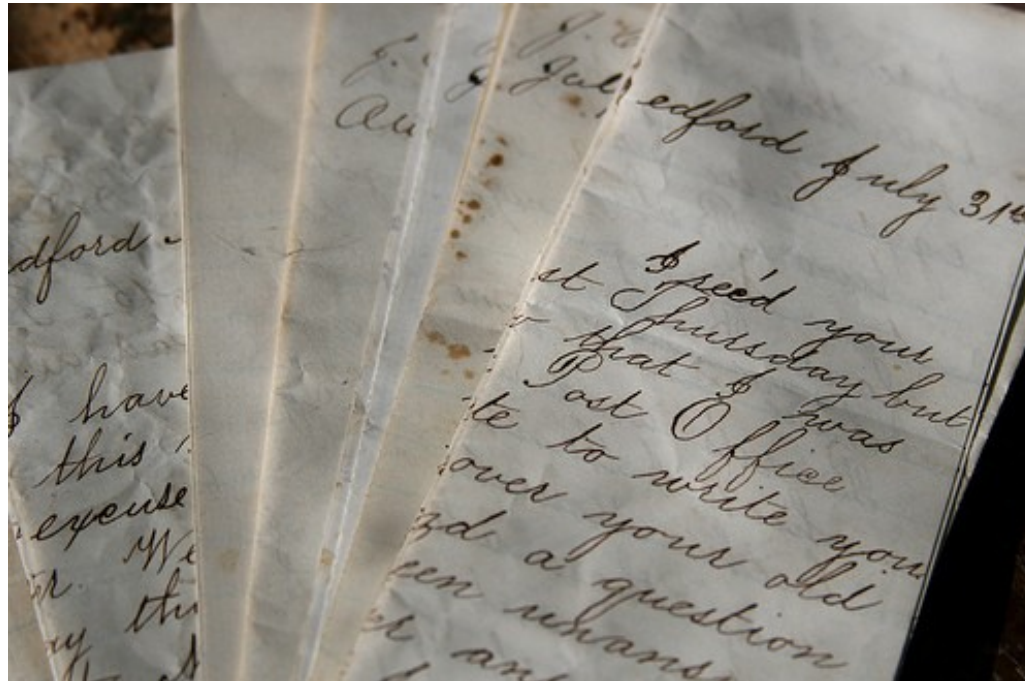 dford
I have
this
excuse
We
J.
Au
J.
Jul
edford July 31st
I rec'd your
st Thursday but
that I was
Post Office
te to write you
over your old
zd a question
een unans
er any